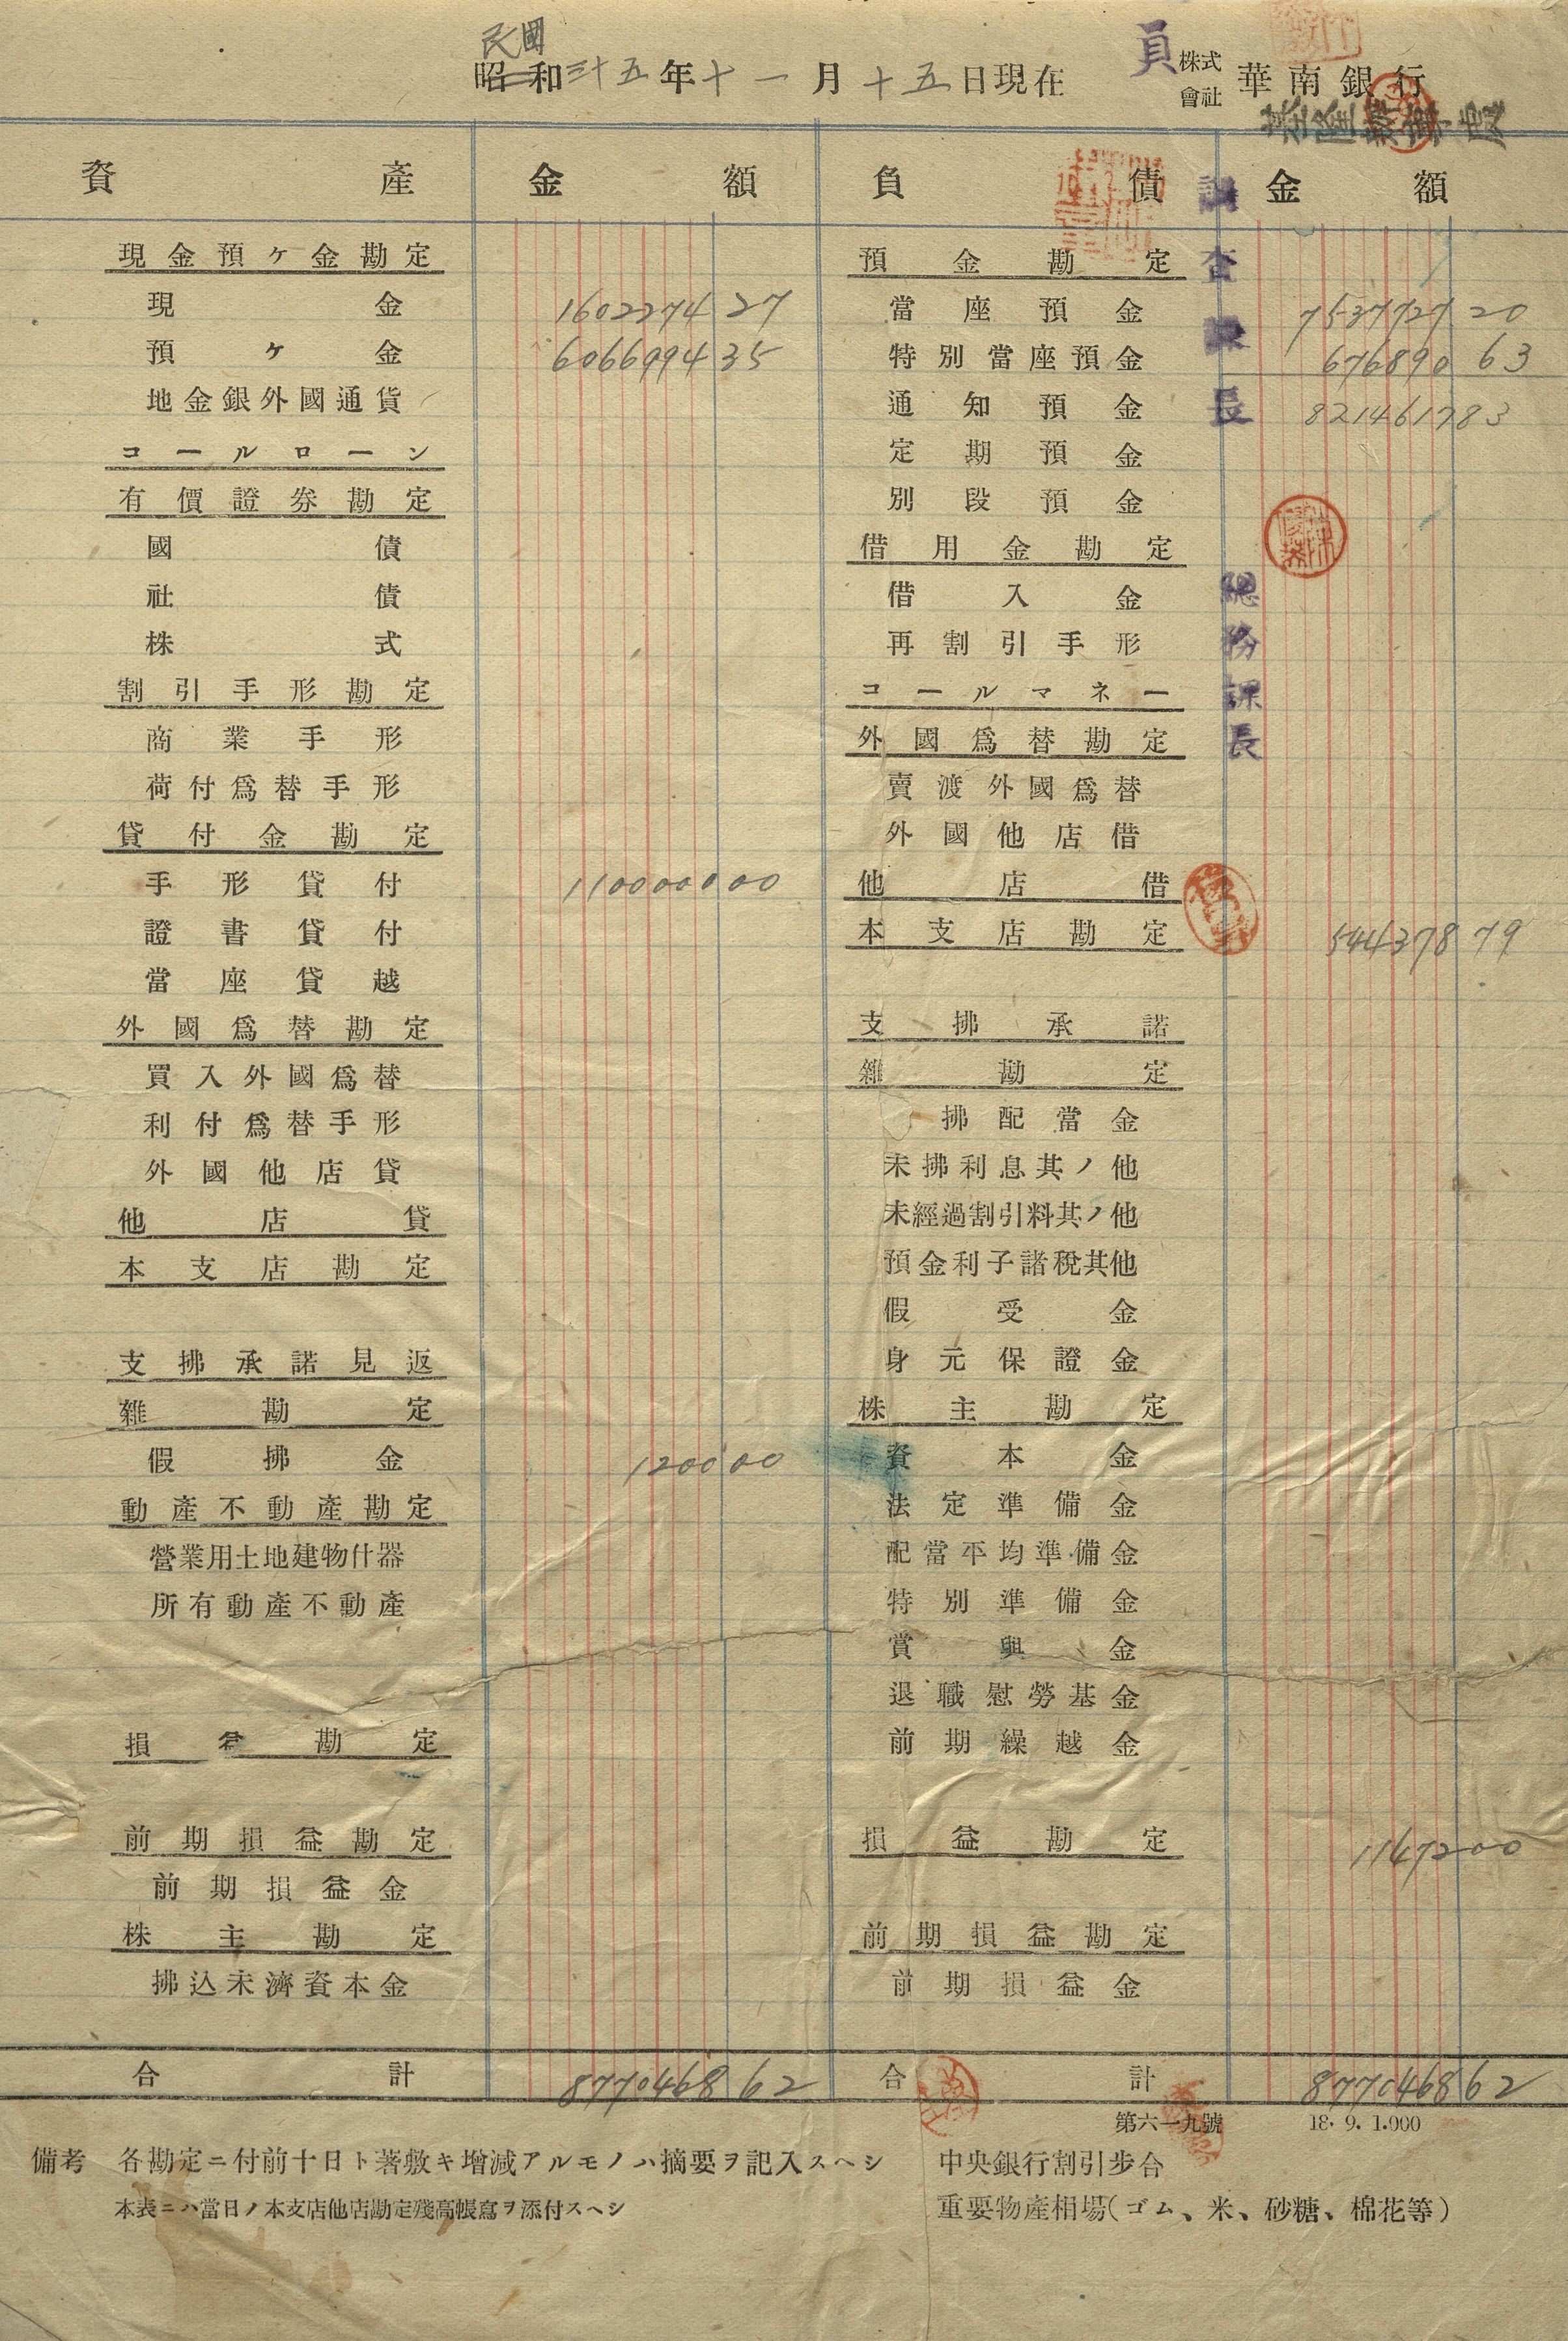 民國
昭和三十五年十一月十五日現在
員 株式會社 華南銀行
基隆辦事處
資產 金額 負債 金額
調查課長
總務課長
現金預ケ金勘定 預金勘定
現金 1602274 27 當座預金 7537727 20
預ケ金 6066994 35 特別當座預金 676890 63
地金銀外國通貨 通知預金 8214617 83
コールローン 定期預金
有價證券勘定 別段預金
國債 借用金勘定
社債 借入金
株式 再割引手形
割引手形勘定 コールマネー
商業手形 外國爲替勘定
荷付爲替手形 賣渡外國爲替
貸付金勘定 外國他店借
手形貸付 1100000 00 他店借
證書貸付 本支店勘定 544378 79
當座貸越
外國爲替勘定 支拂承諾
買入外國爲替 雜勘定
利付爲替手形 拂配當金
外國他店貸 未拂利息其ノ他
他店貸 未經過割引料其ノ他
本支店勘定 預金利子諸稅其他
假受金
支拂承諾見返 身元保證金
雜勘定 株主勘定
假拂金 1200 00 資本金
動產不動產勘定 法定準備金
營業用土地建物什器 配當平均準備金
所有動產不動產 特別準備金
賞與金
退職慰勞基金
損益勘定 前期繰越金
前期損益勘定 損益勘定 11472 00
前期損益金
株主勘定 前期損益勘定
拂込未濟資本金 前期損益金
合計 8770468 62 合計 8770468 62
第六一九號 18. 9. 1.000
備考 各勘定ニ付前十日ト著敷キ增減アルモノハ摘要ヲ記入スヘシ 中央銀行割引步合
本表ニハ當日ノ本支店他店勘定殘高帳寫ヲ添付スヘシ 重要物產相場(ゴム、米、砂糖、棉花等)